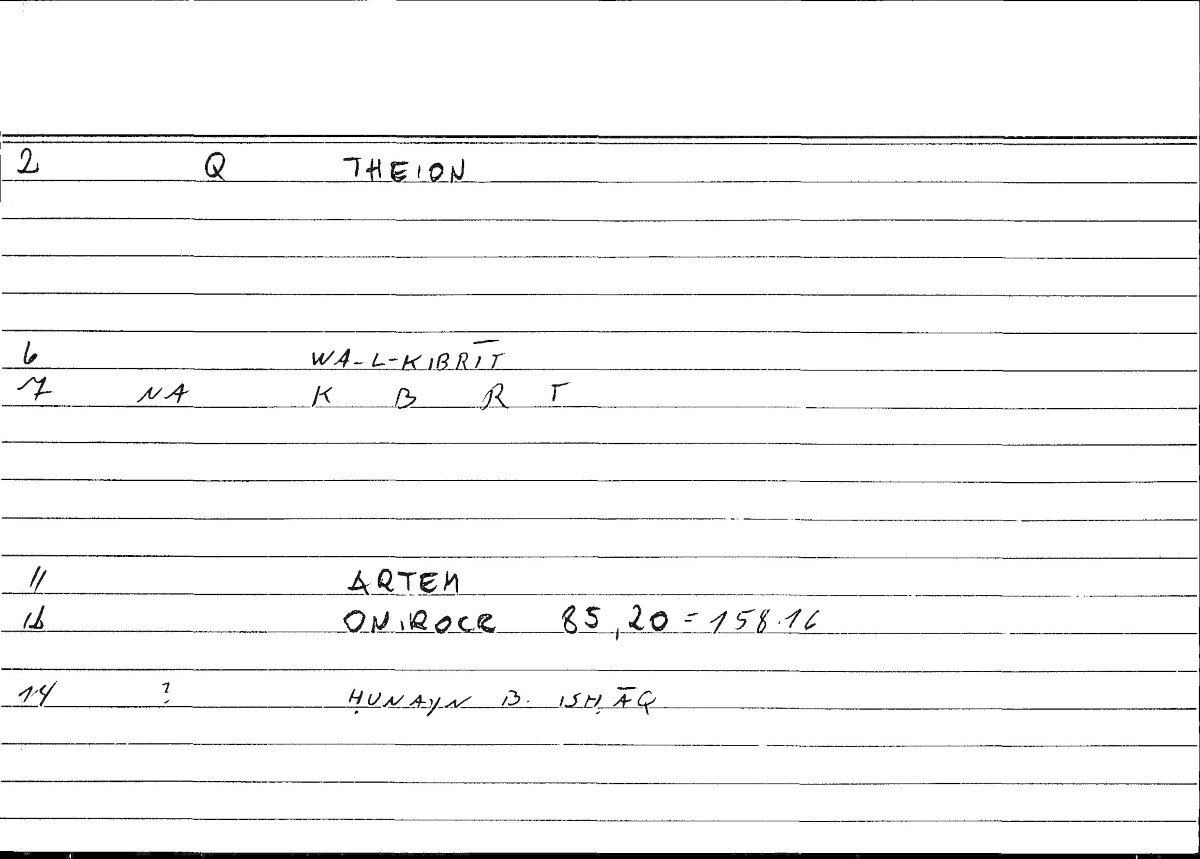 2 Q THEION
6 WA-L-KIBRĪT
7 NA K B R T
11 ARTEM
12 ONIROCR 85,20=158.16
14 ? ḤUNAYN B. ISḤĀQ